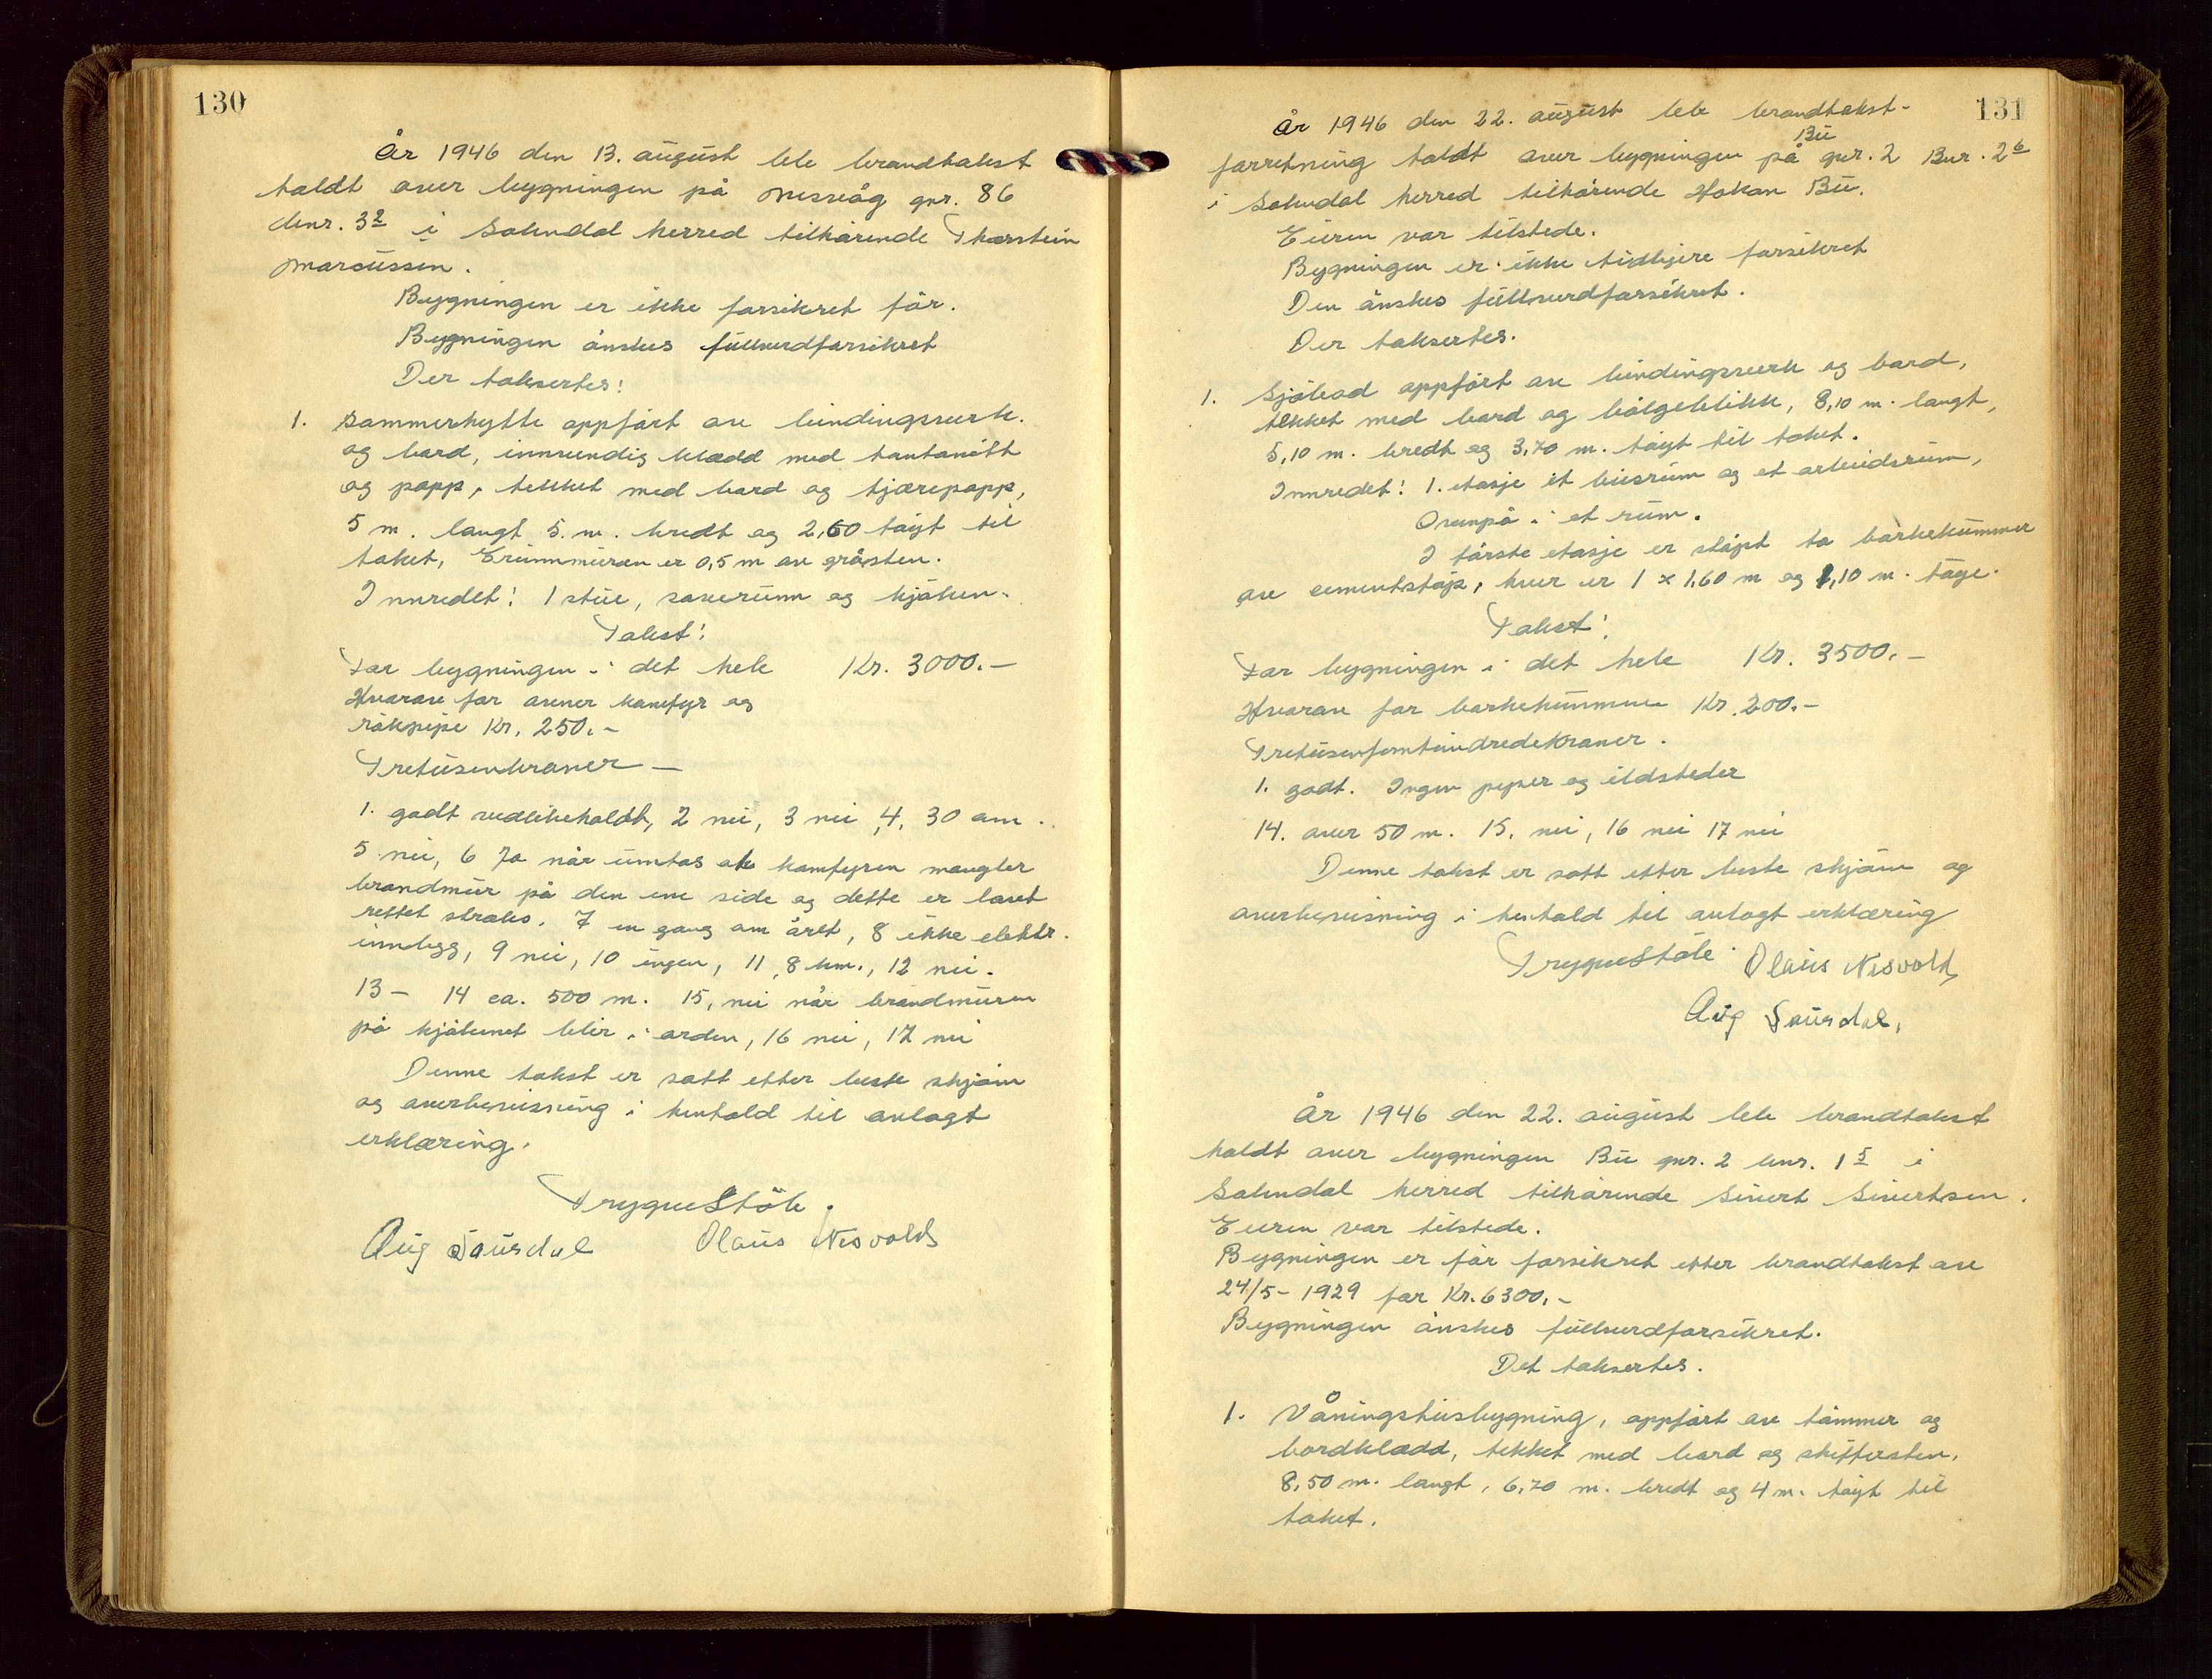 130
År 1946 den 13. august ble brandtakst
holdt over bygningen på Nesvåg gnr. 86
bnr. 3² i Sokndal herred tilhørende Thorstein
Marcussen.
Bygningen er ikke forsikret før.
Bygningen ønskes fullverdforsikret
Der taksertes:
1. Sommerhytte oppført av bindingsverk.
og bord, innvendig kledd med tentanitt
og papp, tekket med bord og tjærepapp,
5 m. langt 5. m. bredt og 2,60 høyt til
taket, Grunnmuren er 0,5 m av gråsten.
Innredet: 1 stue, soverum og kjøken.
Takst:
For bygningen i det hele Kr. 3000.-
Hvorav for ovner komfyr og
rökpipe Kr. 250.-
Tretusenkroner —
1. godt vedlikeholdt, 2 nei, 3 nei, 4, 30 cm.
5 nei, 6 Ja når untas at komfyren mangler
brandmur på den ene side og dette er lovet
rettet straks. 7 en gang om året, 8 ikke elektr.
innlegg, 9 nei, 10 ingen, 11, 8 km., 12 nei.
13 - 14 ca. 500 m. 15, nei når brandmuren
på kjøkenet blir i orden, 16 nei, 17 nei
Denne takst er satt etter beste skjønn
og overbevisning i henhold til avlagt
erklæring.
Trygve Støle.
Aug Saursdal Olaus Nesvold
131
År 1946 den 22. august ble brandtakst-
Bu
forretning holdt over bygningen på gnr. 2 Bnr. 2⁶
i Sokndal herred tilhørende Hakon Bu.
Eieren var tilstede.
Bygningen er ikke tidligere forsikret
Den ønskes fullverdforsikret.
Der taksertes.
1. Sjøbod oppført av bindingsverk og bord,
tekket med bord og bølgeblikk, 8,10 m. langt,
5,10 m. bredt og 3,70 m. høyt til taket.
Innredet: 1. etasje et busrum og et arbeidsrum,
Ovenpå i et rum.
I første etasje er støpt to barkekummer
av cementstøp, hver er 1 x 1,60 m og 1,10 m. høye.
Takst:
For bygningen i det hele Kr. 3500.-
Hvorav for barkekummene Kr. 200.-
Tretusenfemhundredekroner.
1. godt. Ingen peper og ildsteder
14. over 50 m. 15. nei, 16 nei 17 nei
Denne takst er satt etter beste skjønn og
overbevisning i henhold til avlagt erklæring
Trygve Støle Olaus Nesvold,
Aug Saursdal,
År 1946 den 22. august ble brandtakst
holdt over bygningen Bu gnr. 2 bnr. 1⁵ i
Sokndal herred tilhørende Sivert Sivertsen.
Eieren var tilstede.
Bygningen er før forsikret etter brandtakst av
24/5-1929 for Kr. 6300.-
Bygningen ønskes fullverdforsikret.
Det taksertes.
1. Våningshusbygning, oppført av tømmer og
bordkledd, tekket med bord og skiffersten,
8,50 m. langt, 6,70 m. bredt og 4 m. høyt til
taket.